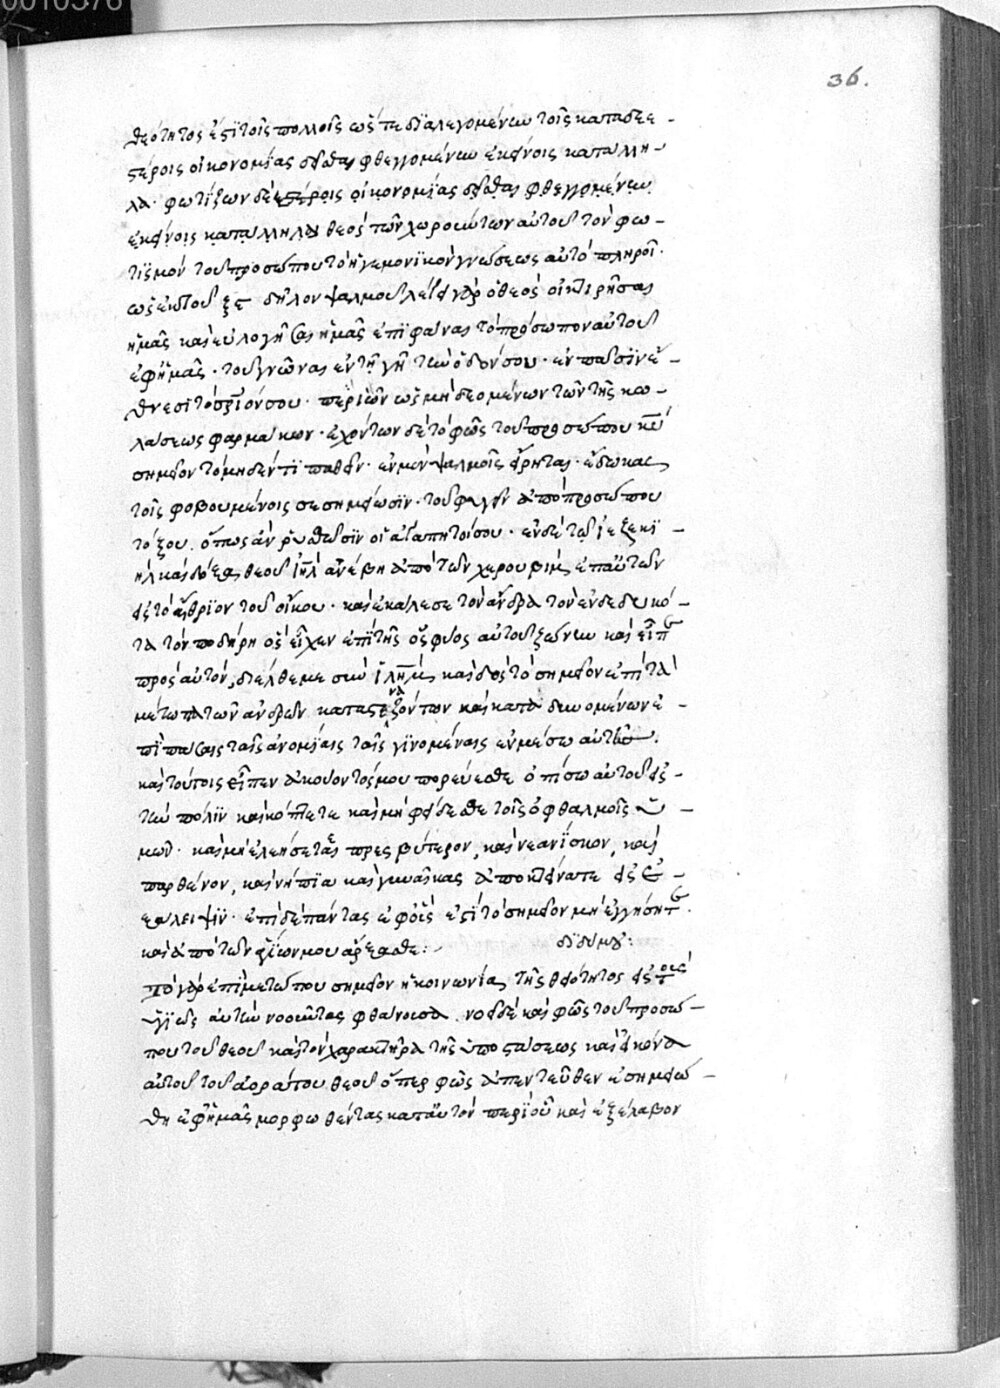 0010376
36.
θεότητος ἐστὶ τοῖς πολλοῖς ὥς τε διαλεγομένων τοῖς καταδεε -
στέροις οἰκονομίας φθεγγομένων ἐκείνοις κατάλλη -
λα · φωτίζων δὲ στέροις οἰκονομίας φθεγγομένων
ἐκείνοις κατάλληλα θεὸς τῶν χωρούντων αὐτοῦ τὸν φω -
τισμὸν τοῦ προσώπου τὸ ἡγεμονικὸν γνώσεως αὐτὸ πληροῖ ·
ὡς ἐκ τοῦ ξς δῆλον ψαλμοῦ λέγει γὰρ ὁ θεὸς οἰκτιρήσαι
ἡμᾶς καὶ εὐλογήσαι ἡμᾶς ἐπιφάναι τὸ πρόσωπον αὐτοῦ
ἐφ' ἡμᾶς · τοῦ γνῶναι ἐν τῇ γῇ τὴν ὁδόν σου · ἐν πᾶσιν ἔ -
θνεσι τὸ σριόν σου · περὶ ὧν ὡς μὴ δεομένων τῶν τῆς κο -
λάσεως φαρμάκων · ἐχόντων δὲ τὸ φῶς τοῦ προσώπου κυ
σημεῖον τὸ μηδέν τι παθεῖν · ἐν μὲν ψαλμοῖς εἴρηται · ἔδωκας
τοῖς φοβουμένοις σε σημείωσιν · τοῦ φυγεῖν ἀπὸ προσώπου
τόξου . ὅπως ἂν ῥυσθῶσιν οἱ ἀγαπητοί σου · ἐν δὲ τῷ ἰεζεκι -
ὴλ καὶ δόξα θεοῦ ιηλ ἀνέβη ἀπὸ τῶν χερουβὶμ ἐπ' αὐτῶν
εἰς τὸ αἴθριον τοῦ οἴκου · καὶ ἐκάλεσε τὸν ἄνδρα τὸν ἐνδεδυκό -
τα τὸν ποδήρη ὃς εἶχεν ἐπὶ τῆς ὀσφύος αὐτοῦ ζώνην καὶ εἶπε
πρὸς αὐτόν, δίελθε μέσην ιλημ καὶ δὸς τὸ σημεῖον ἐπὶ τὰ
μέτωπα τῶν ἀνδρῶν καταστεναζόντων καὶ κατωδυνωμένων ἐ -
πὶ πάσαις ταῖς ἀνομίαις ταῖς γινομέναις ἐν μέσῳ αὐτῶν .
καὶ τούτοις εἶπεν ἀκούοντός μου πορεύεσθε ὀπίσω αὐτοῦ εἰς -
τὴν πόλιν καὶ κόπτετε καὶ μὴ φείδεσθε τοῖς ὀφθαλμοῖς ὑ -
μῶν · καὶ μὴ ἐλεήσετε πρεσβύτερον, καὶ νεανίσκον, καὶ
παρθένον, καὶ νήπια καὶ γυναῖκας ἀποκτείνατε εἰς ἐ -
ξάλειψιν · ἐπὶ δὲ πάντας ἐφ' οἷς ἐστὶ τὸ σημεῖον μὴ ἐγγίσητε .
καὶ ἀπὸ τῶν ἁγίων μου ἄρξασθε : διδύμου :
τὸ γὰρ ἐπὶ μετώπου σημεῖον ἡ κοινωνία τῆς θεότητος εἰς τοὺς
ὑγιῶς αὐτὴν νοοῦντας φθάνουσα . νοεῖ δὲ καὶ φῶς τοῦ προσώ -
που τοῦ θεοῦ καὶ τὸν χαρακτῆρα τῆς ὑποστάσεως καὶ εἰκόνα
αὐτοῦ τοῦ ἀοράτου θεοῦ ὅπερ φῶς ἀπεντεῦθεν ἐσημειώ -
θη ἐφ' ἡμᾶς μορφωθέντας κατ' αὐτὸν περὶ οὗ καὶ ἐξέλαβον